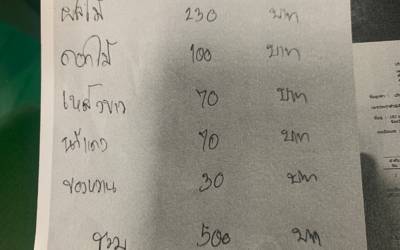 ผลไม้ 230 บาท
ดอกไม้ 100 บาท
เหล้าขาว 70 บาท
น้ำแดง 70 บาท
ของหวาน 30 บาท
รวม 500 บาท